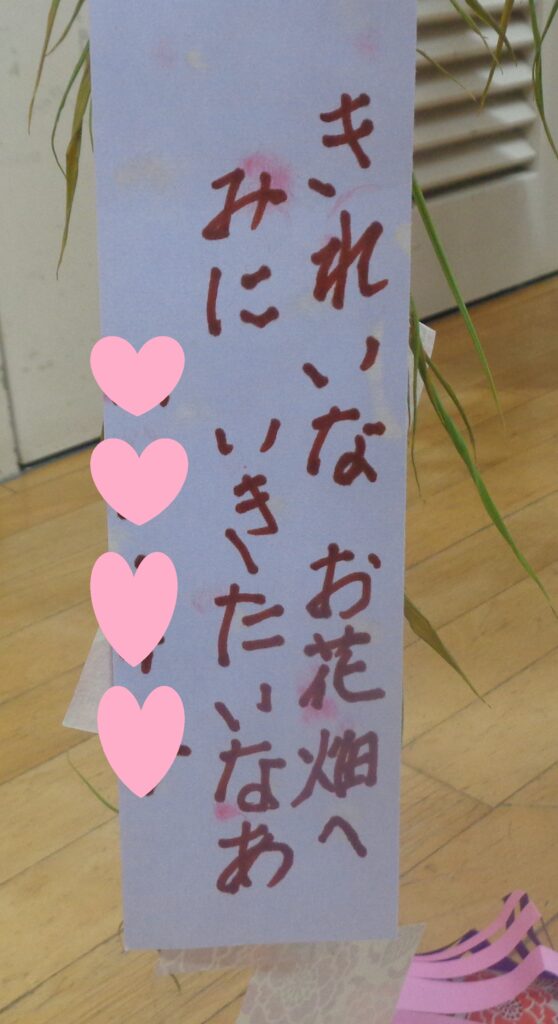 きれいな お花畑へ
みに いきたいなあ